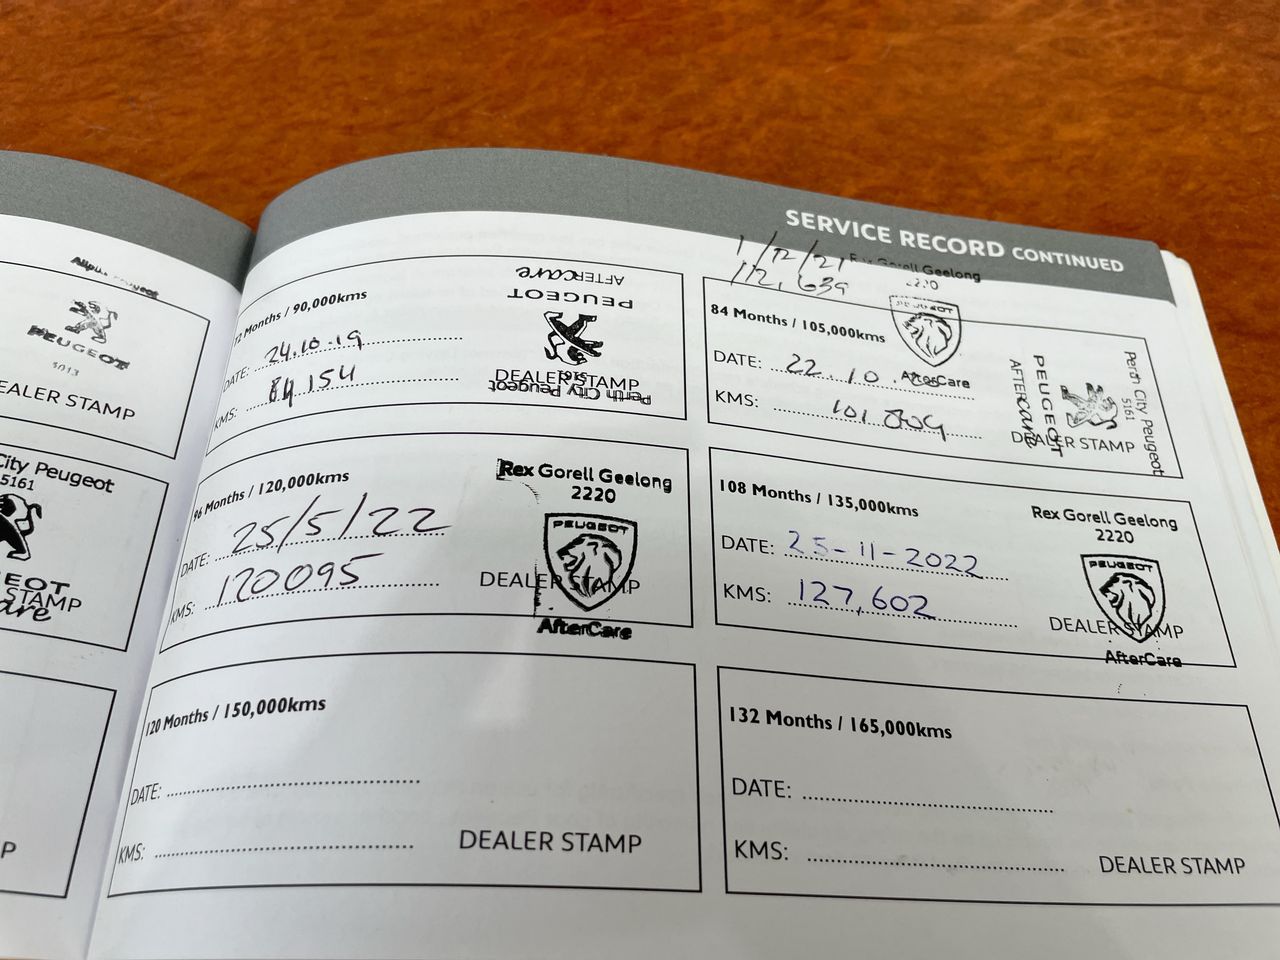 SERVICE RECORD CONTINUED
PEUGEOT
EALER STAMP
City Peugeot
5161
EOT
STAMP
are
P
72 Months / 90,000kms
DATE: 24.10.19
KMS: 84,154
AFTERcare
PEUGEOT
5161
DEALER STAMP
Perth City Peugeot
1/12/21
112,639
Rex Gorell Geelong
2220
PEUGEOT
AfterCare
84 Months / 105,000kms
DATE: 22.10.
KMS: 101,809
PEUGEOT
AFTERcare
DEALER STAMP
Perth City Peugeot
5161
96 Months / 120,000kms
DATE: 25/5/22
KMS: 120095
Rex Gorell Geelong
2220
PEUGEOT
DEALER STAMP
AfterCare
108 Months / 135,000kms
DATE: 25-11-2022
KMS: 127,602
Rex Gorell Geelong
2220
PEUGEOT
DEALER STAMP
AfterCare
120 Months / 150,000kms
DATE:
KMS:
DEALER STAMP
132 Months / 165,000kms
DATE:
KMS:
DEALER STAMP